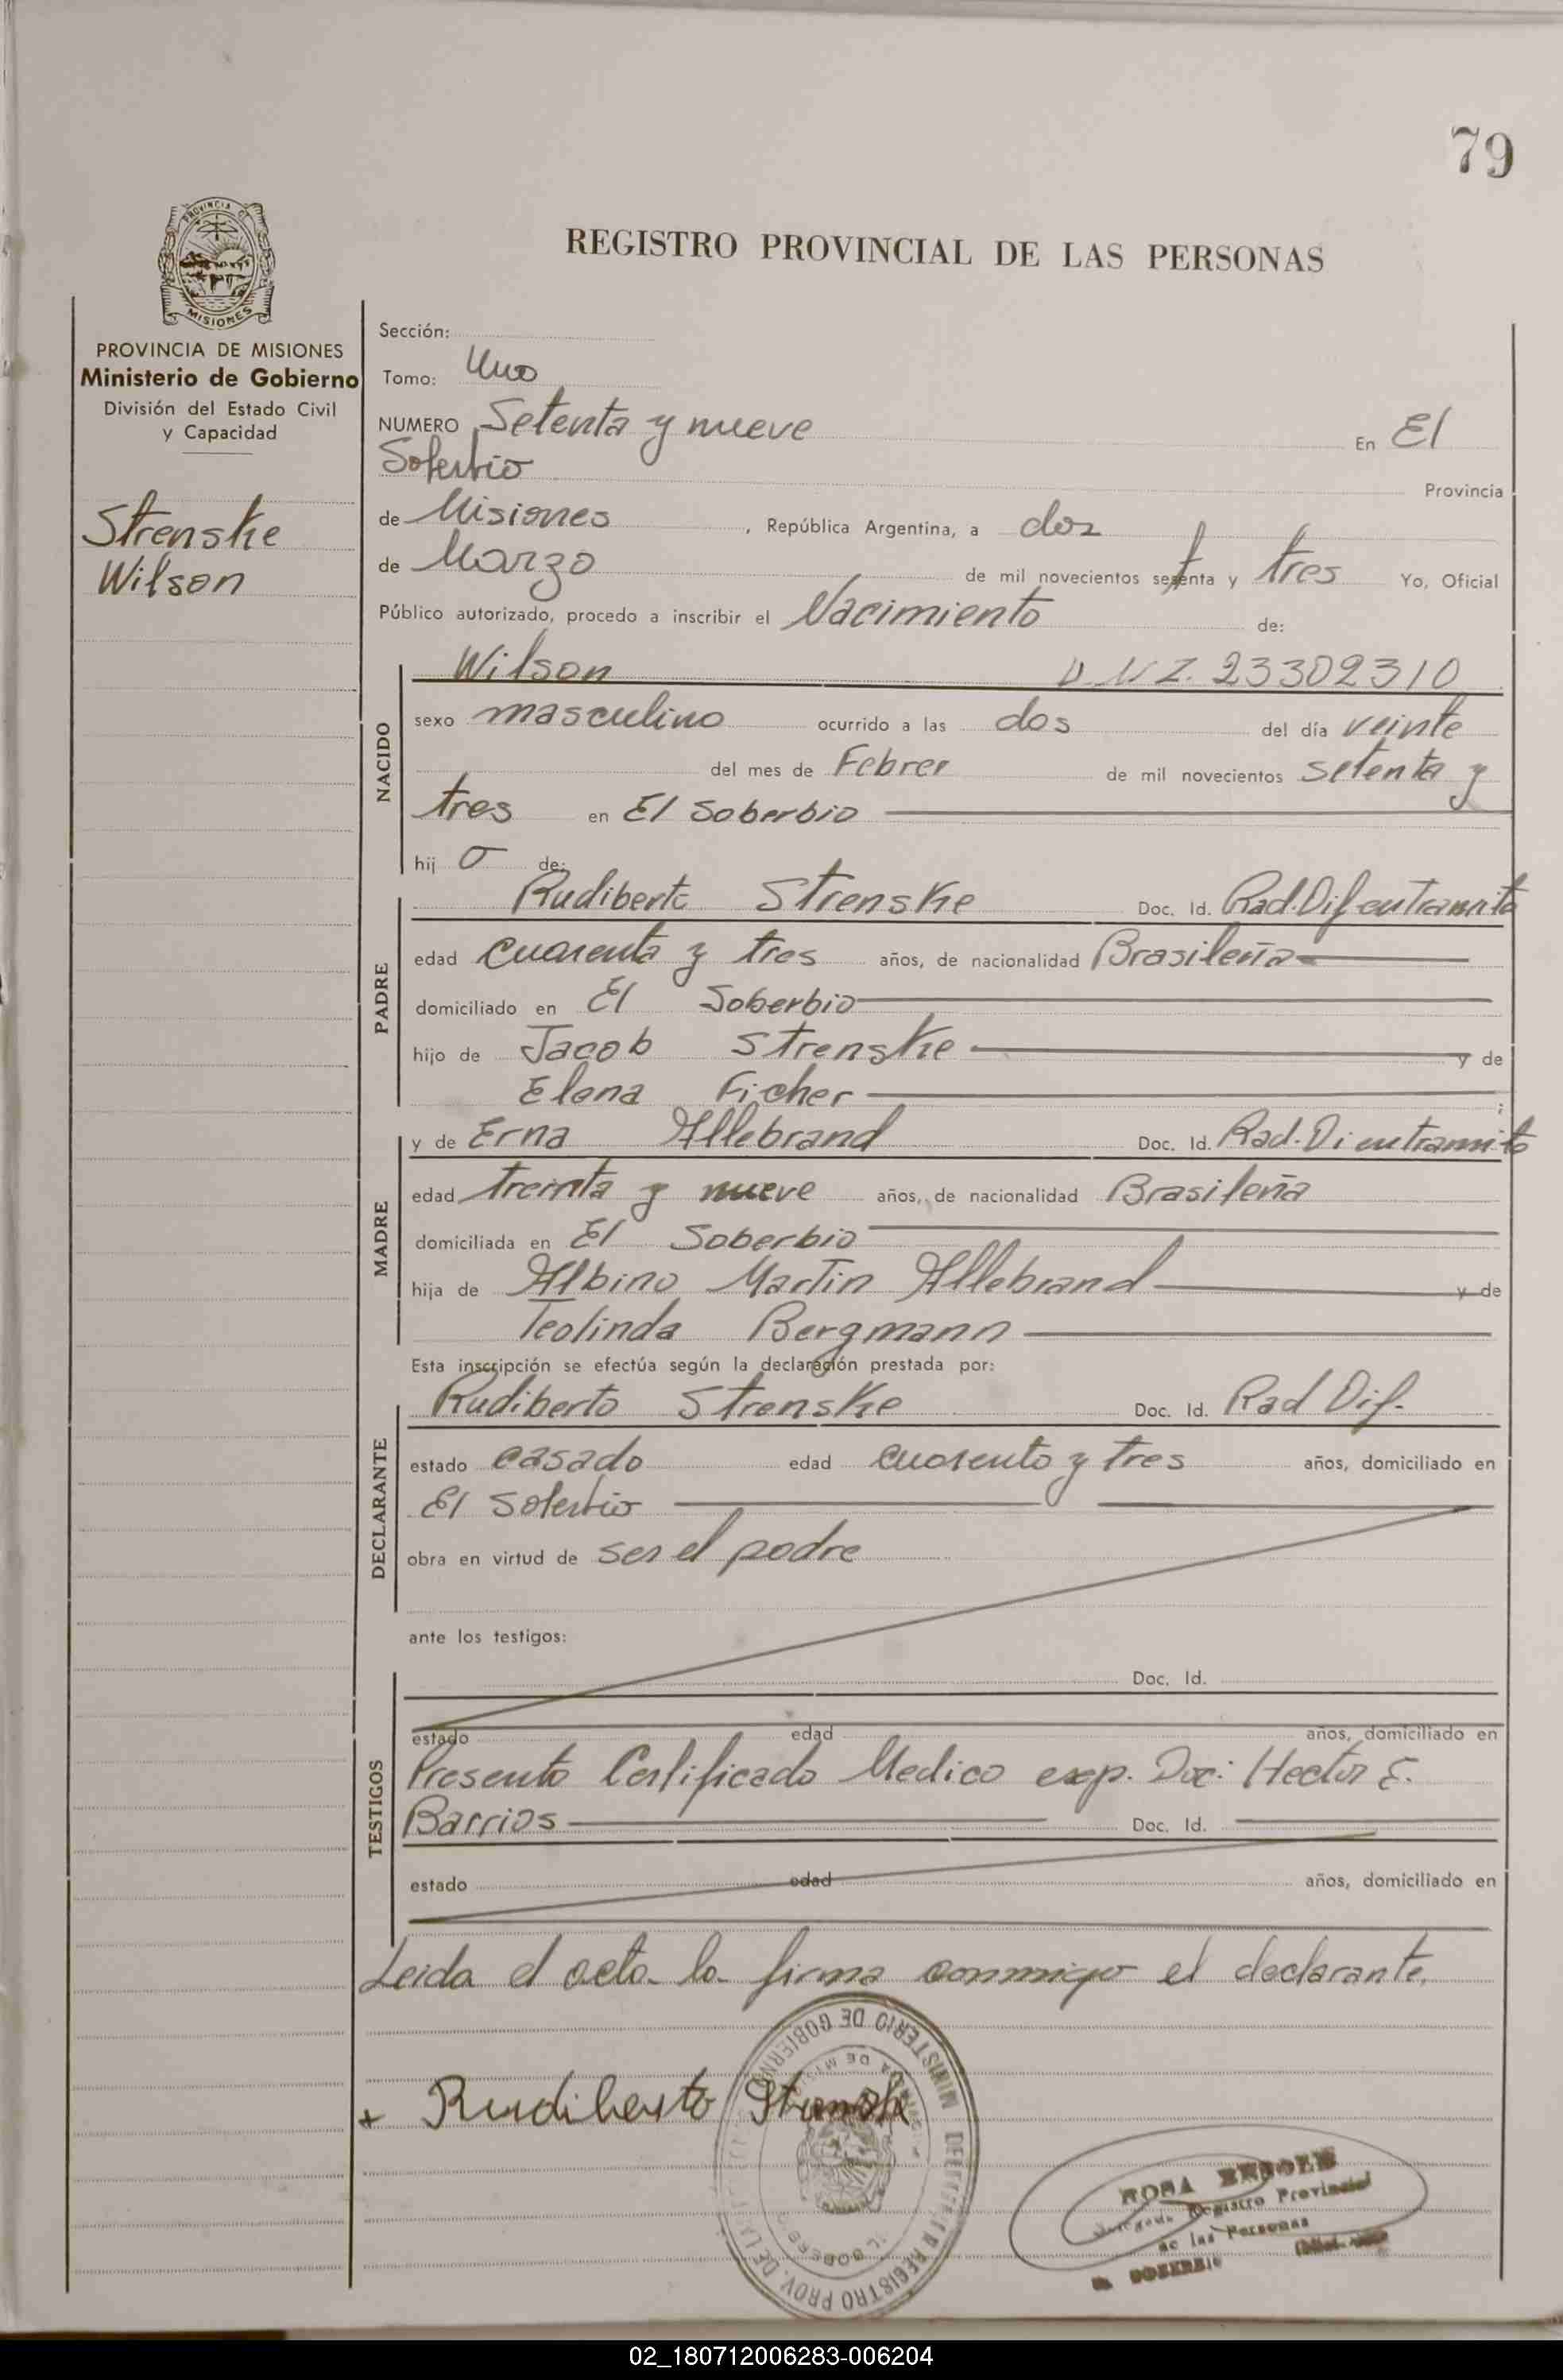 79
PROVINCIA DE
MISIONES
REGISTRO PROVINCIAL DE LAS PERSONAS
PROVINCIA DE MISIONES
Ministerio de Gobierno
División del Estado Civil
y Capacidad
Strenske
Wilson
Sección:
Tomo: Uno
NUMERO Setenta y nueve En El
Soberbio Provincia
de Misiones , República Argentina, a dos
de Marzo de mil novecientos setenta y tres Yo, Oficial
Público autorizado, procedo a inscribir el Nacimiento de:
NACIDO
Wilson D.N.I. 23302310
sexo masculino ocurrido a las dos del día veinte
del mes de Febrer de mil novecientos setenta y
tres en El Soberbio
hij o de:
PADRE
Rudiberto Strenske Doc. Id. Rad. Dif en tramite
edad cuarenta y tres años, de nacionalidad Brasileña
domiciliado en El Soberbio
hijo de Jacob Strenske y de
Elena Ficher ;
MADRE
y de Erna Allebrand Doc. Id. Rad. Di en tramite
edad treinta y nueve años, de nacionalidad Brasileña
domiciliada en El Soberbio
hija de Albino Martin Allebrand y de
Teolinda Bergmann
Esta inscripción se efectúa según la declaración prestada por:
DECLARANTE
Rudiberto Strenske Doc. Id. Rad Dif.
estado casado edad cuarenta y tres años, domiciliado en
El Soberbio
obra en virtud de ser el padre
ante los testigos:
TESTIGOS
Doc. Id.
estado edad años, domiciliado en
Presento Certificado Medico exp. Doc: Hector E.
Barrios Doc. Id.
estado edad años, domiciliado en
Leida el acta la firma conmigo el declarante.
+ Rudiberto Strenske
MINISTERIO DE GOBIERNO
REGISTRO PROV. DE LAS
ROSA
Delegada Registro Provincial
de las Personas
EL SOBERBIO
02_180712006283-006204